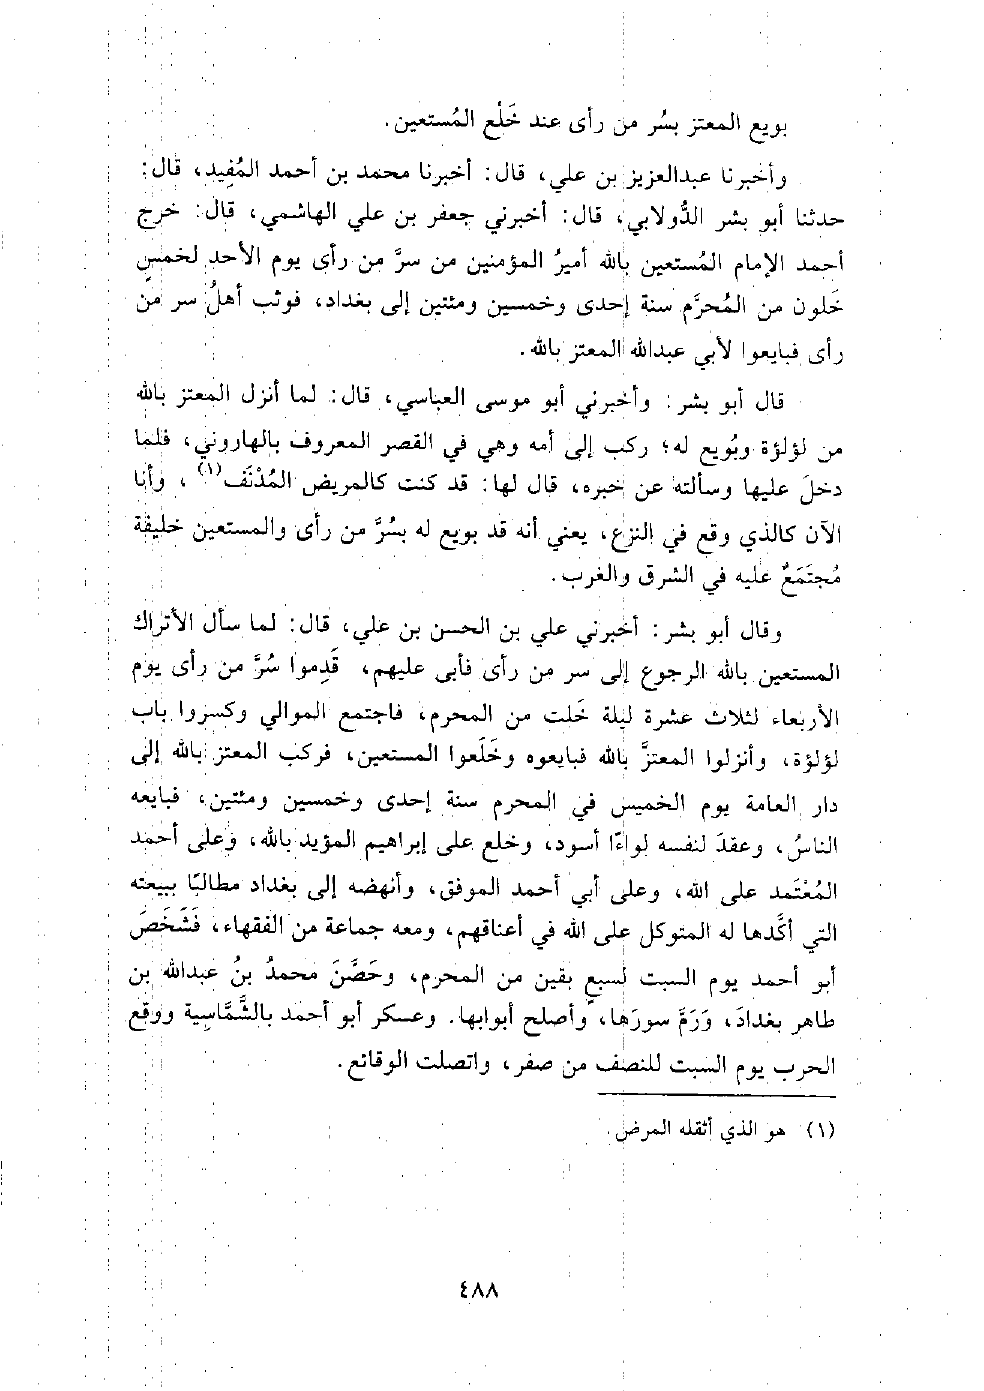 بويع المعتز بسُر من رأى عند خَلْع المُستعين.
وأخبرنا عبدالعزيز بن علي، قال: أخبرنا محمد بن أحمد المُفِيد، قال:
حدثنا أبو بشر الدُّولابي، قال: أخبرني جعفر بن علي الهاشمي، قال: خرج
أحمد الإمام المُستعين بالله أميرُ المؤمنين من سرَّ من رأى يوم الأحد لخمسٍ
خَلون من المُحرَّم سنة إحدى وخمسين ومئتين إلى بغداد، فوثب أهلُ سر من
رأى فبايعوا لأبي عبدالله المعتز بالله.
قال أبو بشر: وأخبرني أبو موسى العباسي، قال: لما أنزل المعتز بالله
من لؤلؤة وبُويع له؛ ركب إلى أمه وهي في القصر المعروف بالهاروني، فلما
دخلَ عليها وسألته عن خبره، قال لها: قد كنت كالمريض المُدْنَف(١)، وأنا
الآن كالذي وقع في النزع، يعني أنه قد بويع له بسُرَّ من رأى والمستعين خليفة
مُجتَمَعٌ عليه في الشرق والغرب.
وقال أبو بشر: أخبرني علي بن الحسن بن علي، قال: لما سأل الأتراك
المستعين بالله الرجوع إلى سر من رأى فأبى عليهم، قَدِموا سُرَّ من رأى يوم
الأربعاء لثلاث عشرة ليلة خَلت من المحرم، فاجتمع الموالي وكسروا باب
لؤلؤة، وأنزلوا المعتزَّ بالله فبايعوه وخَلَعوا المستعين، فركب المعتز بالله إلى
دار العامة يوم الخميس في المحرم سنة إحدى وخمسين ومئتين، فبايعه
الناسُ، وعقدَ لنفسه لواءًا أسود، وخلع على إبراهيم المؤيد بالله، وعلى أحمد
المُعْتَمد على الله، وعلى أبي أحمد الموفق، وأنهضه إلى بغداد مطالبًا ببيعته
التي أكَّدها له المتوكل على الله في أعناقهم، ومعه جماعة من الفقهاء، فَشَخَصَ
أبو أحمد يوم السبت لسبعٍ بقين من المحرم، وحَصَّنَ محمدُ بنُ عبدالله بن
طاهر بغدادَ، وَرَمَّ سورَها، وأصلح أبوابها. وعسكر أبو أحمد بالشَّمَّاسِية ووقع
الحرب يوم السبت للنصف من صفر، واتصلت الوقائع.
(١) هو الذي أثقله المرض.
٤٨٨